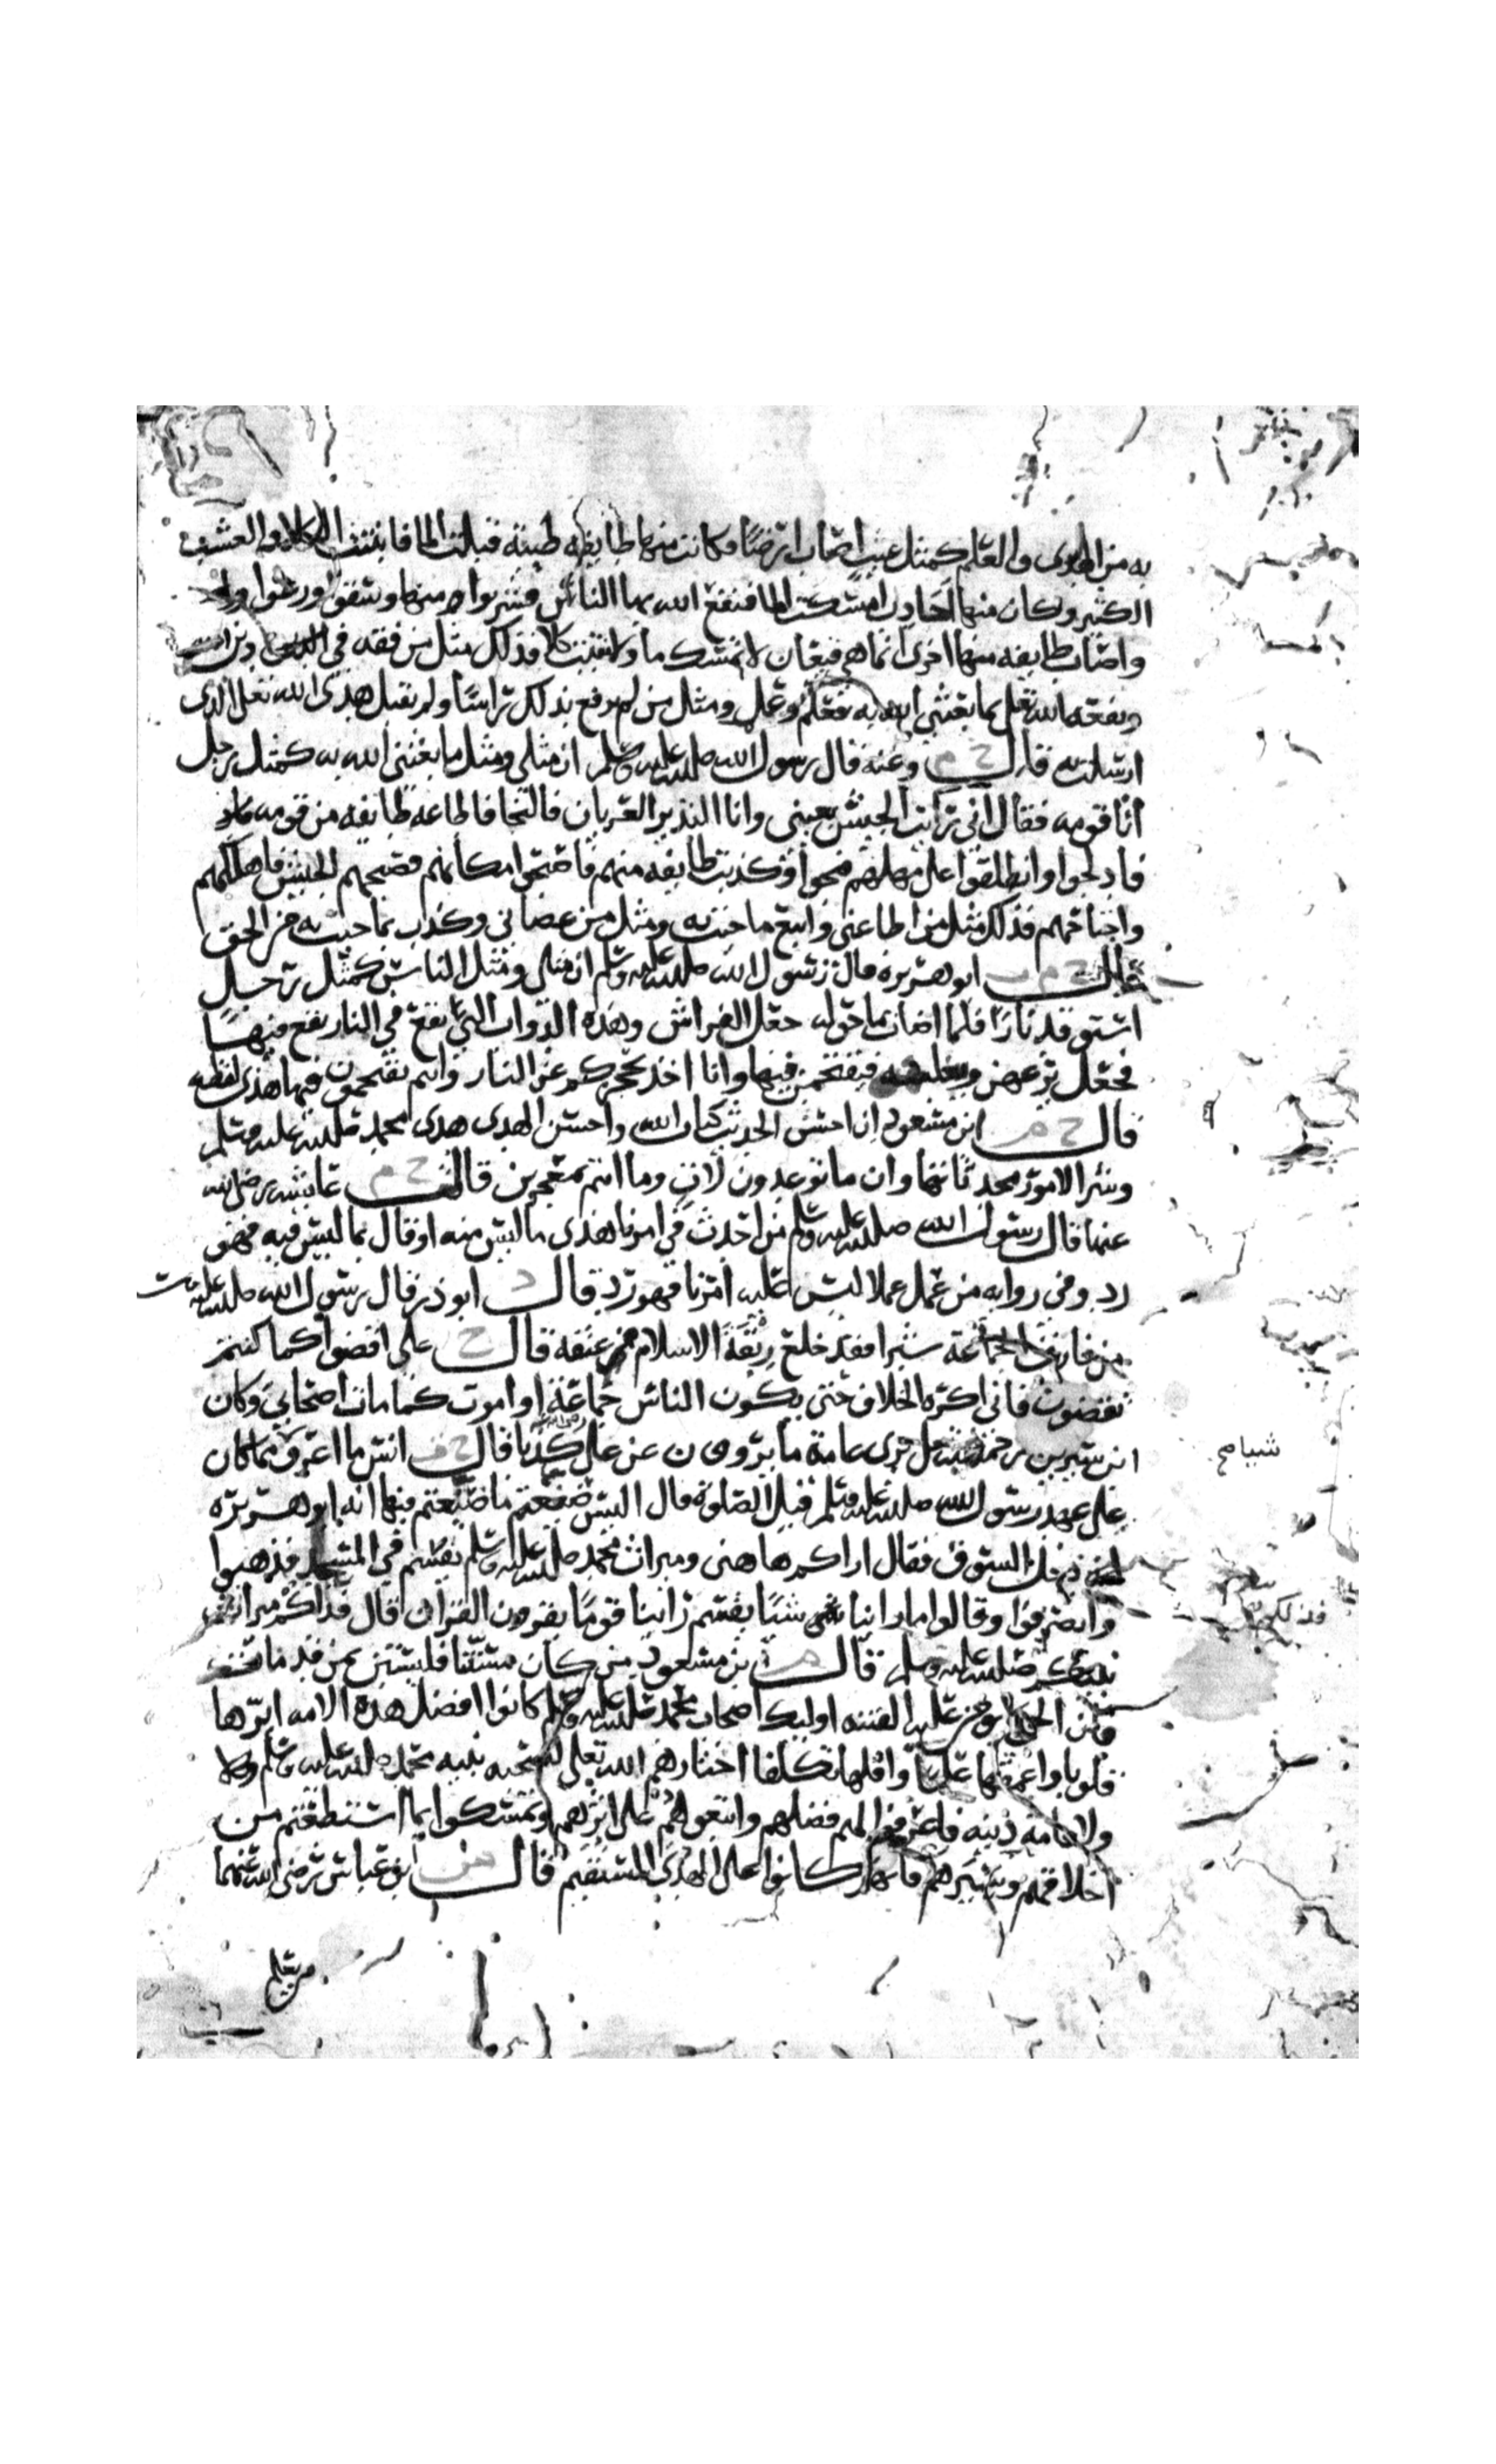 به من الهدى والعلم كمثل غيث اصاب ارضا فكانت منها طايفه طيبة قبلت الما فانبتت الكلا والعشب
الكثير وكان منها اجادب امسكت الما فنفع الله بها الناس فشربوا منها وسقوا ورعوا
واصاب طايفه منها اخرى انما هي قيعان لا تمسك ما ولا تنبت كلا فذلك مثل من فقه في دين الله
ونفعه الله تعلى بما بعثني الله به فعلم وعمل ومثل من لم يرفع بذلك راسا ولم يقبل هدى الله تعلى الذى
ارسلت به قال خ م وعنه قال رسول الله صلى الله عليه وسلم ان مثلي ومثل ما بعثني الله به كمثل رجل
اتا قومه فقال انى رايت الجيش بعينى وانا النذير العريان فالنجا فاطاعه طايفه من قومه
فادلجوا وانطلقوا على مهلهم فنجوا وكذبت طايفه منهم فاصبحوا مكانهم فصبحهم الجيش فاهلكهم
واجتاحهم فذلك مثل من اطاعنى واتبع ما جئت به ومثل من عصانى وكذب بما جيت به من الحق
قال خ م ت ابو هريره قال رسول الله صلى الله عليه وسلم ان مثلى ومثل الناس كمثل رجل
استوقد نارا فلما اضات ما حوله جعل الفراش وهذه الدواب التى تقع في النار يقع فيها
فجعل يزعهن ويغلبنه فيقتحمن فيها وانا اخذ بحجزكم عن النار وانتم تقتحمون فيها هذى لفظه
قال خ م ابن مسعود ان احسن الحديث كتاب الله واحسن الهدى هدى محمد صلى الله عليه وسلم
وشر الامور محدثاتها وان ما توعدون لات وما انتم بمعجزين قالت خ م عايشه رضى الله
عنها قال رسول الله صلى الله عليه وسلم من احدث في امرنا هذى ما ليس منه او قال بما ليس فيه فهو
رد وفى روايه من عمل عملا ليس عليه امرنا فهو رد قال د ابو ذر قال رسول الله صلى الله عليه
من فارق الجماعة شبرا فقد خلع ربقة الاسلام من عنقه قال خ على اقضوا كما كنتم
تقضون فانى اكره الخلاف حتى يكون الناس جماعة او اموت كما مات اصحابى وكان
ابن سيرين يرى عامة ما يروى عن على كذبا قال خ ت انس ما اعرف مما كان
على عهد رسول الله صلى الله عليه وسلم قيل الصلوة قال اليس ضيعتم ما ضيعتم فيها ابو هريره
دخل السوق فقال اراكم هاهنى وميراث محمد صلى الله عليه وسلم يقسم في المسجد فذهبوا
وانصرفوا وقالوا ما راينا شيا يقسم راينا قوما يقرون القران قال فذاكم ميراث
نبيكم صلى الله عليه وسلم قال بن مسعود من كان مستنا فليستن بمن قد مات
فان الحى لا تومن عليه الفتنه اوليك اصحاب محمد صلى الله عليه وسلم كانوا افضل هذه الامه ابرها
قلوبا واعمقها علما واقلها تكلفا اختارهم الله تعلى لصحبه نبيه محمد صلى الله عليه وسلم
ولاقامة دينه فاعرفوا لهم فضلهم واتبعوهم على اثرهم وتمسكوا بما استطعتم من
اخلاقهم وسيرهم فانهم كانوا على الهدى المستقيم قال بن عباس رضى الله عنهما